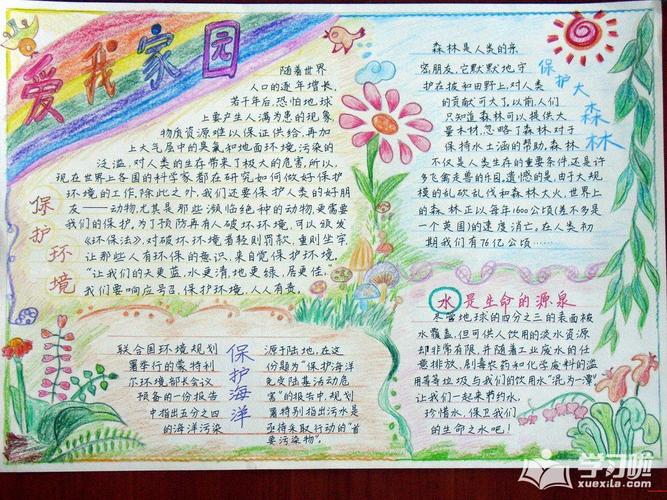 爱我家园
保护环境
随着世界
人口的逐年增长,
若干年后,恐怕地球
上要产生人满为患的现象
物质资源难以保证供给,再加
上大气层中的臭氧和地面环境污染的
泛滥,对人类的生存带来了极大的危害,所以,
现在世界上各国的科学家都在研究如何做好保护
环境的工作,除此之外,我们还要保护人类的好朋
友——动物,尤其是那些濒临绝种的动物,更需要
我们的保护,为了预防再有人破坏环境,可以颁发
《环保法》,对破坏环境者轻则罚款,重则坐牢,
让那些人有环保的意识,来自觉保护环境,
“让我们的天更蓝,水更清,地更绿,居更佳,”
我们要响应号召,保护环境,人人有责。
保护大森林
森林是人类的亲
密朋友,它默默地守
护在坡和田野上,对人类
的贡献可大了,以前,人们
只知道森林可以提供大
量木材,忽略了森林对于
保持水土涵的帮助,森林
不仅是人类生存的重要条件,还是许
多飞禽走兽的乐园,遗憾的是,由于大规
模的乱砍乱伐和森林大火,世界上
的森林正以每年1600公顷(差不多是
一个英国)的速度消亡,在人类初
期我们有76亿公顷……
保护海洋
联合国环境规划
署举行的蒙特利
尔环境部长会议
预备的一份报告
中指出五分之四
的海洋污染
源于陆地,在这
份题为“保护海洋
免受陆基活动危
害”的报告中,规划
署特别指出污水是
亟待采取行动的“首
要污染物”。
水是生命的源泉
尽管地球的四分之三的表面被
水覆盖,但可供人饮用的淡水资源
却非常有限,并随着工业废水的任
意排放,剧毒农药和化学废料的滥
用等等垃圾与我们的饮用水“混为一潭”
让我们一起来节约水,
珍惜水,保卫我们
的生命之水吧!
学习啦
xuexila.com